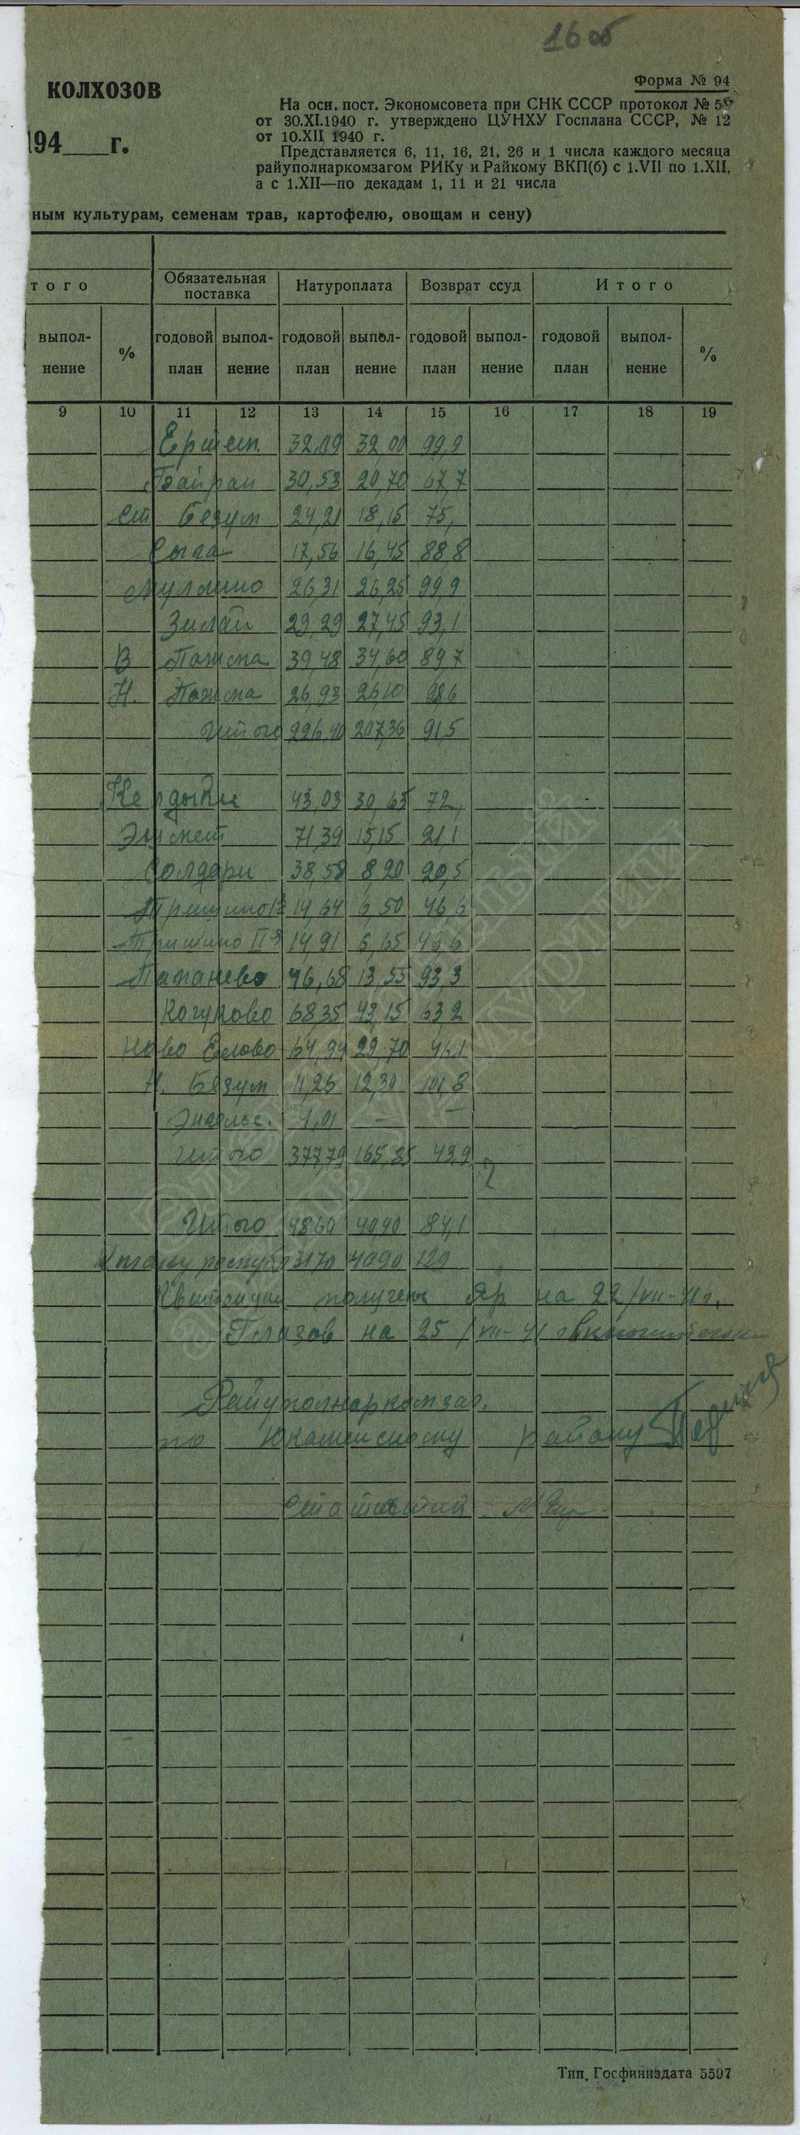 16 об
КОЛХОЗОВ
194___г.
Форма № 94
На осн. пост. Экономсовета при СНК СССР протокол № 59
от 30.XI.1940 г. утверждено ЦУНХУ Госплана СССР, № 12
от 10.XII 1940 г.
Представляется 6, 11, 16, 21, 26 и 1 числа каждого месяца
райуполнаркомзагом РИКу и Райкому ВКП(б) с 1.VII по 1.XII,
а с 1.XII—по декадам 1, 11 и 21 числа
ным культурам, семенам трав, картофелю, овощам и сену)
того Обязательная поставка Натуроплата Возврат ссуд Итого
выполнение % годовой план выполнение годовой план выполнение годовой план выполнение годовой план выполнение %
9 10 11 12 13 14 15 16 17 18 19
Ершет. 32,09 32 00 99,9
Байран 30,53 20,70 67,7
Ст Безум 24,21 18,15 75,
17,56 16,45 88 8
Муллино 26,31 26,25 99 9
Зилай 29,29 27,45 93,1
В Пажма 39,48 34,60 89 7
Н. Пажма 26,93 26,10 98 6
Итого 226,40 207,36 91,5
43,03 30,65 72,
71,39 15,15 21 1
Солдари 38,58 8 20 20,5
14,64 6 50 46 6
14,91 6,65 46,6
13,55 93 3
68,35 43,15 63 2
Ново Елово 64,94 29,70 46,1
Н. Безум 11,26 12,30 101,8
1,01 — —
Итого 377,79 165,85 43,9
Итого 4860 4090 84,1
К плану республ 3170 4090 129
Квитанции получены Яр на 22/VII-41г.
Глазов на 25/VII-41
Райуполнаркомзаг.
по Юкаменскому району
Тип. Госфиниздата 5597